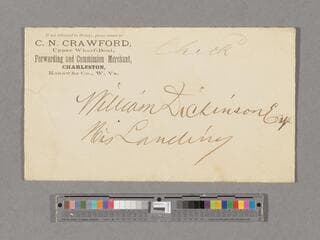 If not delivered in 10 days, please return to
C. N. CRAWFORD,
Upper Wharf-Boat,
Forwarding and Commission Merchant,
CHARLESTON,
Kanawha Co., W. Va.
Check
William Dickinson Esq
His Landing